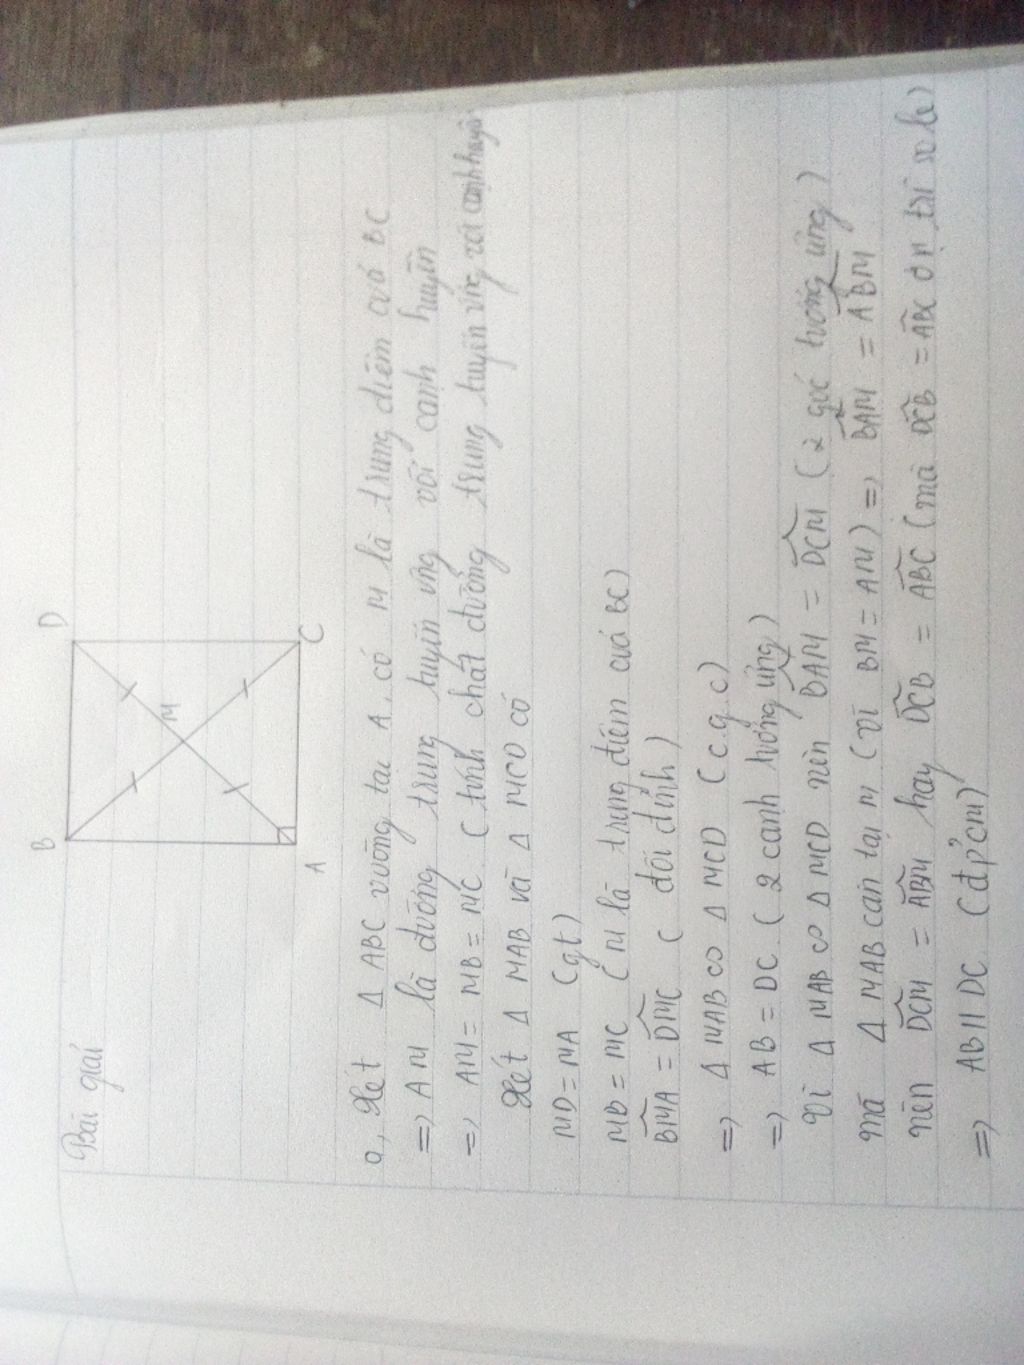 Bài giải
B
D
M
A
C
a, Xét Δ ABC vuông tại A, có M là trung điểm của BC
=> AM là đường trung tuyến ứng với cạnh huyền
=> AM = MB = MC (tính chất đường trung tuyến ứng với cạnh huyền
Xét Δ MAB và Δ MCD có
MD = MA (gt)
MB = MC (M là trung điểm của BC)
BMA = DMC (đối đỉnh)
=> Δ MAB ∽ Δ MCD (c.g.c)
=> AB = DC (2 cạnh tương ứng)
Vì Δ MAB ∽ Δ MCD nên BAM = DCM (2 góc tương ứng)
mà Δ MAB cân tại M (vì BM = AM) => BAM = ABM
nên DCM = ABM hay DCB = ABC (mà DCB = ABC ở vị trí so le)
=> AB // DC (đpcm)